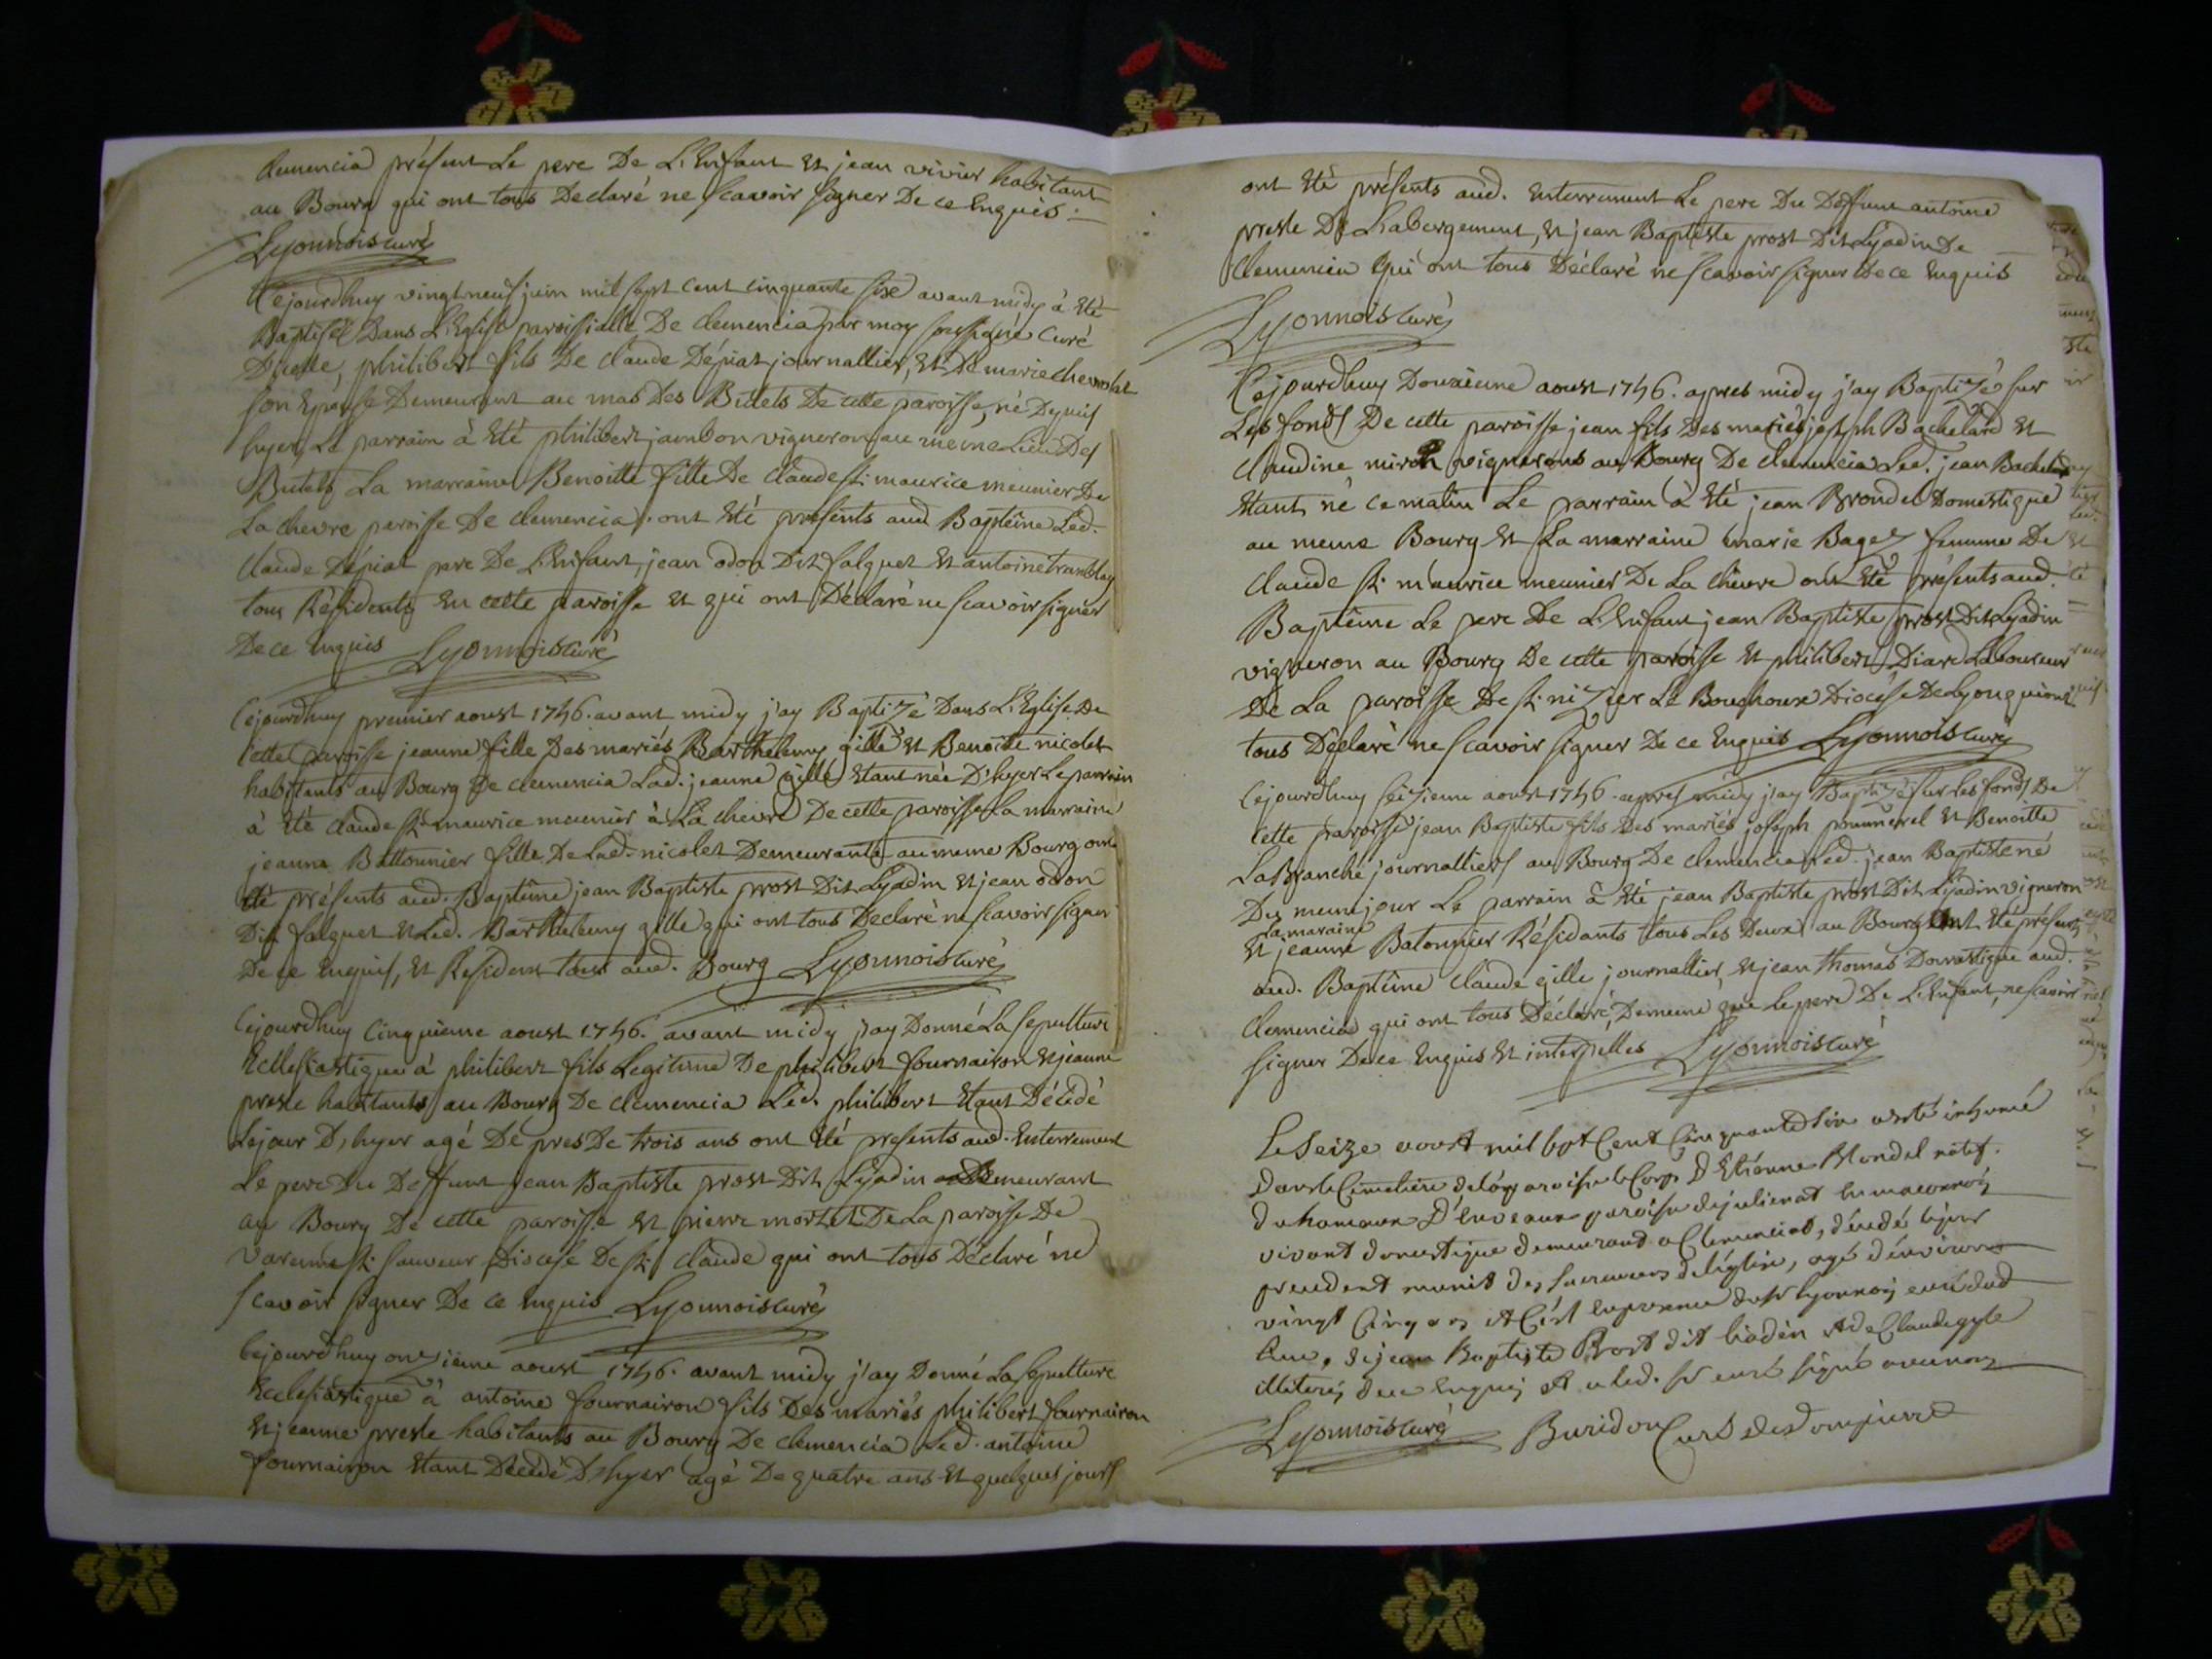 clemencia présent Le pere De L'Enfant Et jean vivier habitant
au Bourg qui ont tous Declaré ne scavoir signer De ce Enquis
Lyonnois curé
Cejourdhuy vingt neuf juin mil sept cent cinquante six avant midy à Eté
Baptisé Dans L'Eglise paroissialle De clemencia par moy soussigné curé
D'icelle, philibert fils De claude Dépiat journallier, Et De marie chevrolat
son Epouse Demeurant au mas Des Butets De cette paroisse, né Depuis
hyer, Le parrain à Eté philibert jambon vigneron au meme Lieu Des
Butets La marraine Benoitte fille De claude st. maurice meunier De
La chevre paroisse De clemencia, ont Eté présents aud Baptême Led.
claude Dépiat pere De L'Enfant, jean odon Dit falquet Et antoine tramblay
tous Résidents En cette paroisse Et qui ont Déclaré ne scavoir signer
De ce Enquis Lyonnois curé
Cejourdhuy premier aoust 1756. avant midy j'ay Baptizé Dans L'Eglise De
cette paroisse jeanne fille Des mariés Barthelemy gille Et Benoite nicolet
habitants au Bourg De clemencia Lad. jeanne gille Etant née D'hyer Le parrain
à Eté claude st. maurice meunier à La chevre De cette paroisse La marraine
jeanne Battonnier fille De Lad. nicolet Demeurante au meme Bourg ont
Eté présents aud. Baptême jean Baptiste prost Dit Lyadin Et jean odon
Dit falquet Et Led. Barthelemy gille qui ont tous Declaré ne scavoir signer
De ce Enquis, Et Residents tous aud. Bourg Lyonnois curé
Cejourdhuy cinquieme aoust 1756. avant midy j'ay Donné La sepulture
Ecclesiastique à philibert fils Legitime De philibert fournairon Et jeanne
preste habitants au Bourg De clemencia Led. philibert Etant Décédé
Lejour D'hyer agé De pres De trois ans ont Eté presents aud. Enterrement
Le pere Du Deffunt jean Baptiste prost Dit Lyadin Demeurant
au Bourg De cette paroisse Et pierre mortet De La paroisse De
varenne st. sauveur Diocese De st. claude qui ont tous Déclaré ne
scavoir signer De ce Enquis Lyonnois curé
Cejourdhuy onzième aoust 1756. avant midy j'ay Donné La sepulture
Ecclesiastique à antoine fournairon fils Des mariés philibert fournairon
Et jeanne preste habitants au Bourg De clemencia Led. antoine
fournairon Etant Decedé D'hyer agé De quatre ans Et quelques jours
ont Eté présents aud. Enterrement Le pere Du Deffunt antoine
preste De Labergement, Et jean Baptiste prost Dit Lyadin De
clemencia qui ont tous Déclaré ne scavoir signer De ce Enquis
Lyonnois curé
Cejourdhuy Douzieme aoust 1756. apres midy j'ay Baptizé sur
Les fonds De cette paroisse jean fils Des mariés joseph Bachelard Et
claudine vignerons au Bourg De clemencia Led. jean Bachelard
Etant né ce matin Le parrain à Eté jean Brondel Domestique
au meme Bourg Et La marraine marie Bagez femme De
claude st. maurice meunier De La chevre ont Eté présents aud.
Baptême Le pere De L'Enfant jean Baptiste prost Dit Lyadin
vigneron au Bourg De cette paroisse Et philibert Diard Laboureur
De La paroisse De st. nizier Le Bouchoux Diocèse De Lyon qui ont
tous Déclaré ne scavoir signer De ce Enquis Lyonnois curé
Cejourdhuy seizieme aoust 1756. apres midy j'ay Baptizé sur Les fonds De
cette paroisse jean Baptiste fils Des mariés joseph pommerel Et Benoitte
La Branche journalliers au Bourg De clemencia Led. jean Baptiste né
Du meme jour Le parrain à Eté jean Baptiste prost Dit Lyadin vigneron
La maraine
Et jeanne Batonnier Résidants tous Les Deux au Bourg ont Eté présents
aud. Baptême claude gille journallier, Et jean thomas Domestique aud.
clemencia qui ont tous Déclaré, Dememe que Le pere De L'Enfant, ne scavoir
signer De ce Enquis Et interpellés Lyonnois curé
Le Seize aoust mil sept Cent Cinquante Six a esté inhumé
dans le Cimetiere de la paroisse le Corps D'Etienne Blondel natif
du hameaux D'Enveaux paroisse de julienat En maconnois
vivant domestique demeurant a Clemenciat, décédé le jour
precedent munit des Sacrements de l'église, agé d'environ
vingt Cinq ans Et Cest En presence du sr lyonnois curé dud
lieu, de jean Baptiste Prost dit liadin Et de Claude gyle
illiterés de ce Enquis Et a led. sr curé signé avec nous
Lyonnois curé Buridon Curé de Dompierre